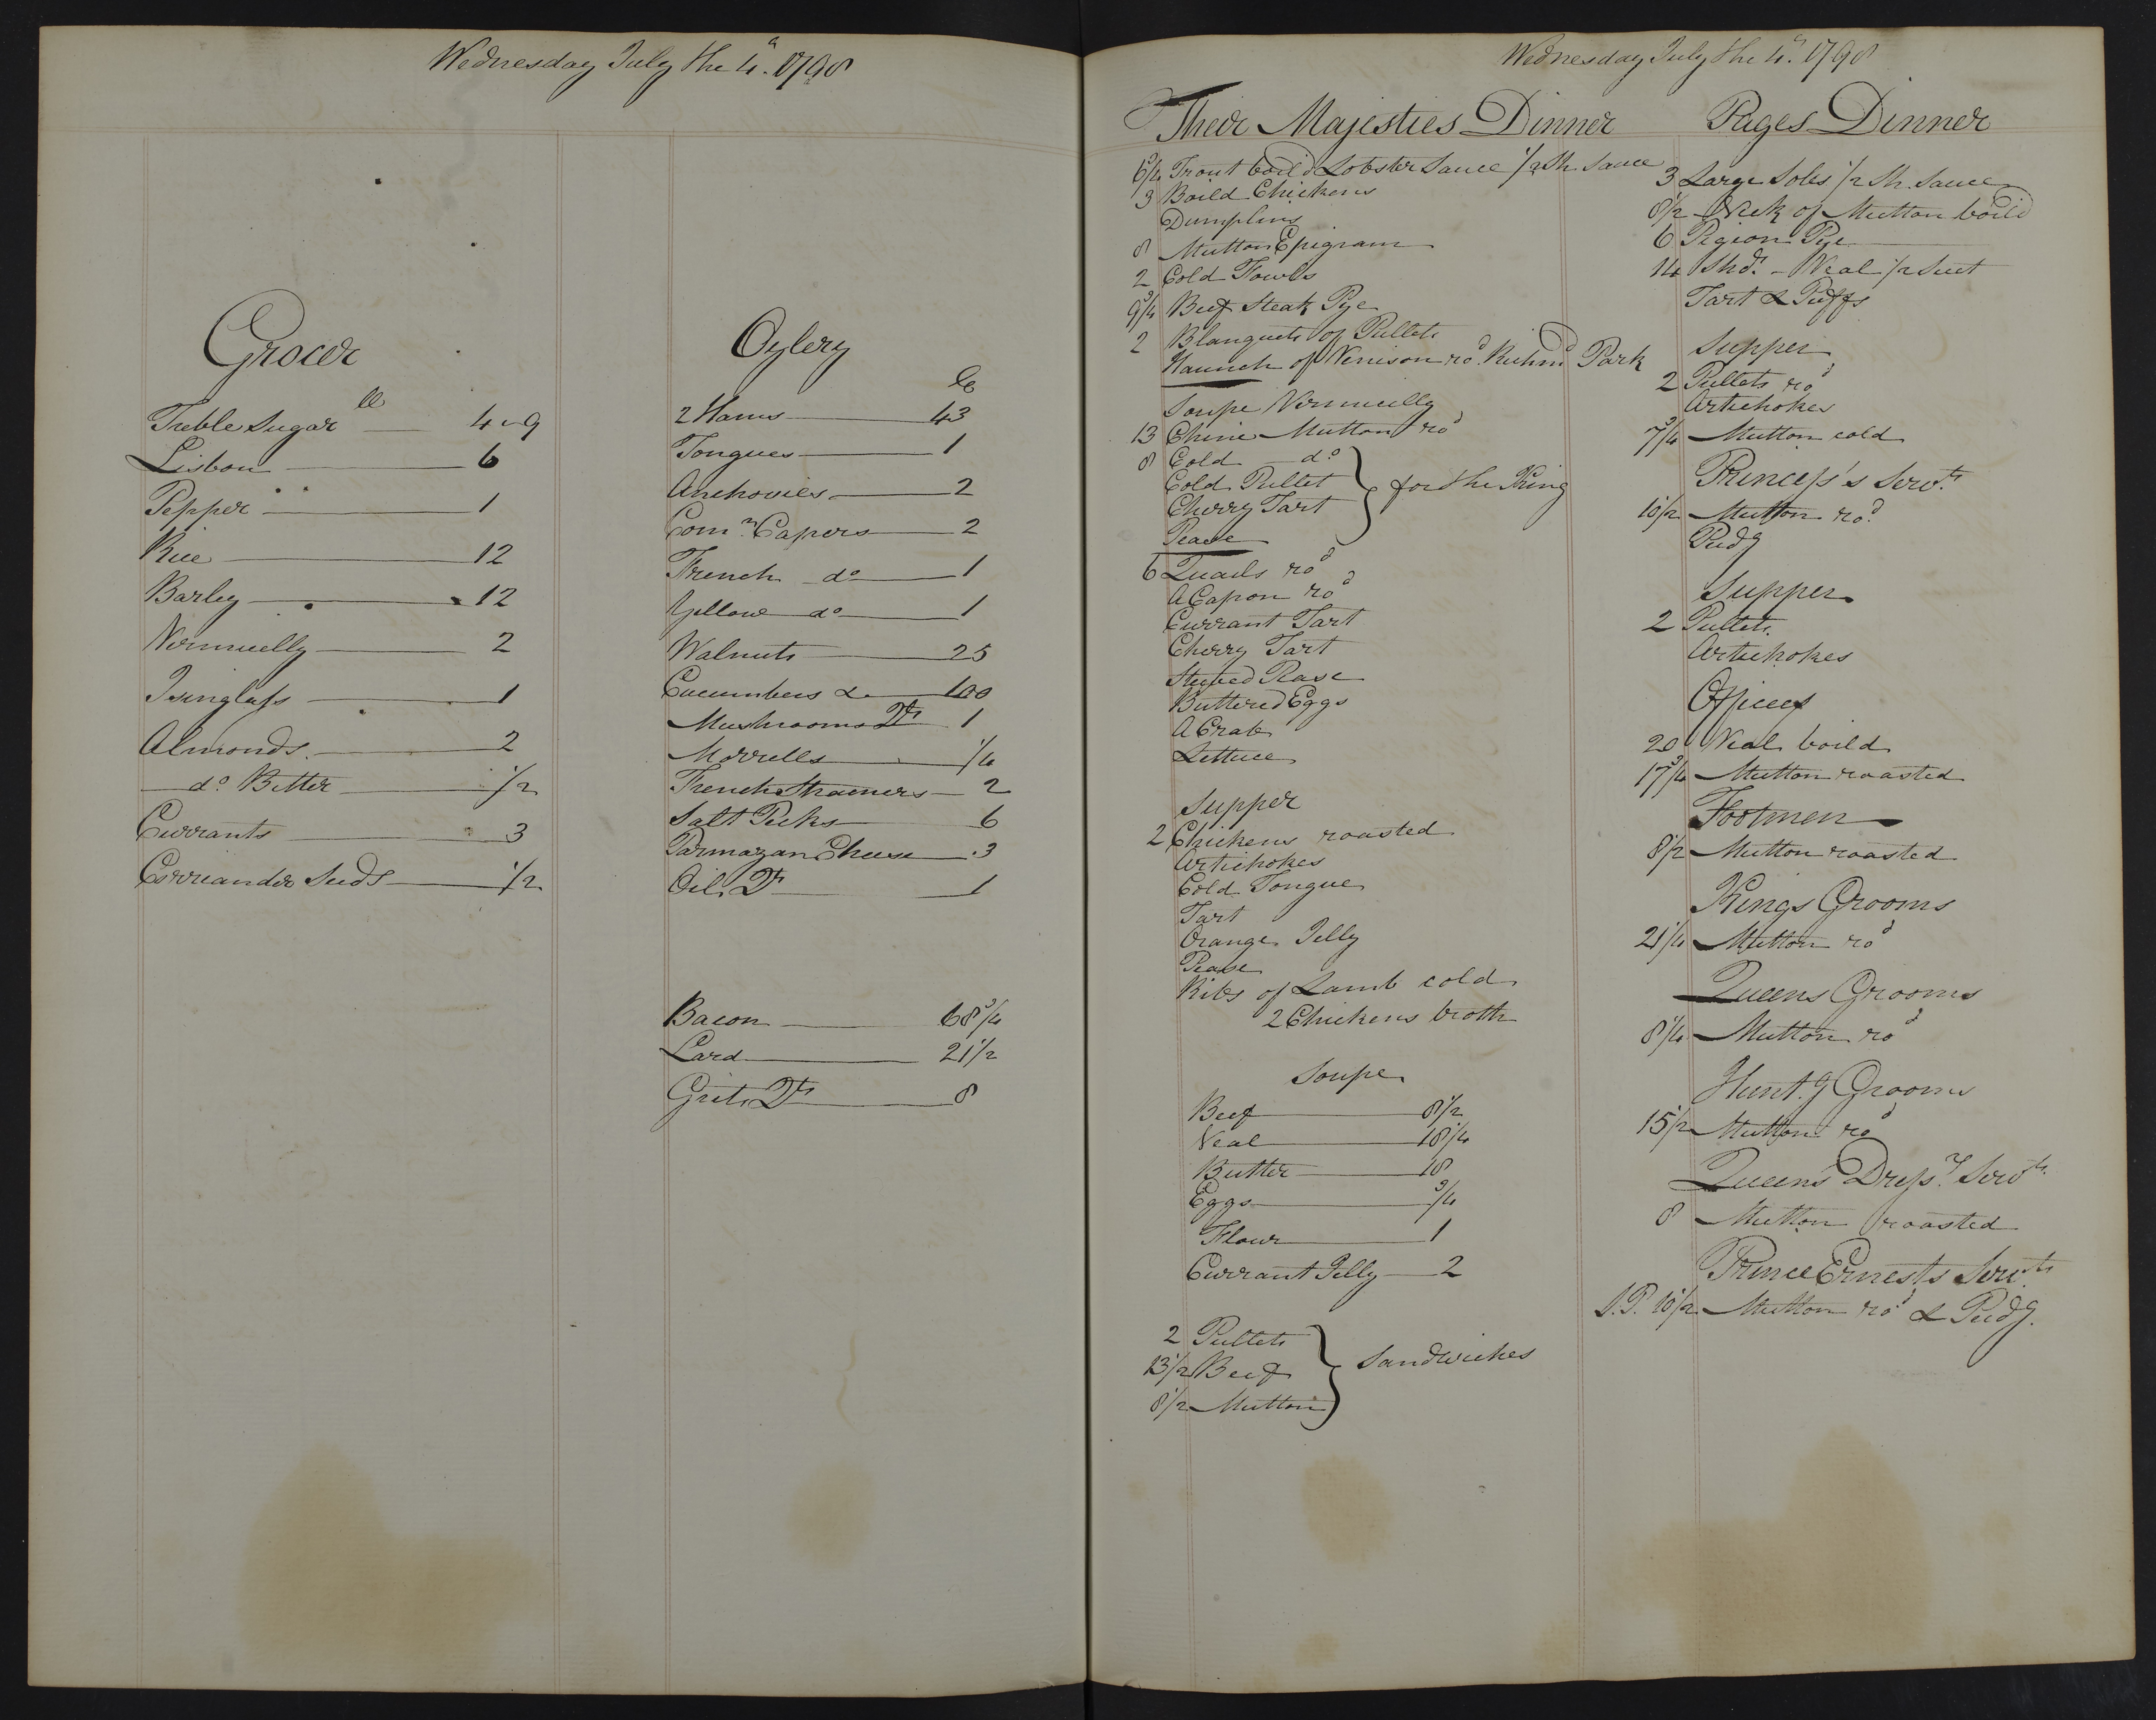 Wednesday July the 4th. 1798
Grocer
lb
Treble Sugar — 4 " 9
Lisbon — 6
Pepper — 1
Rice — 12
Barley — 12
Vermicelly — 2
Isinglass — 1
Almonds — 2
do. Bitter — 1/2
Currants — 3
Corriander Seeds — 1/2
Oylery
lb
2 Hams — 43
Tongues — 1
Anchovies — 2
Comn. Capers — 2
French do — 1
Yellow do — 1
Walnuts — 25
Cucumbers &. — 100
Mushrooms Qts 1
Morrells — 1/4
French Strainers — 2
Salt Pecks — 6
Parmazan Cheese — 3
Oil Qt — 1
Bacon — 68 3/4
Lard — 21 1/2
Grits Qts — 8
Wednesday July the 4th. 1798
Their Majesties Dinner
6 3/4 Trout boild Lobster Sauce 1/2 Sh. Sauce
3 Boild Chickens
Dumplins
8 Mutton Epigram
2 Cold Fowls
9 3/4 Beef Steak Pye
2 Blanquets of Pullets
Haunch of Venison rod. Richmd Park
Soupe Vermicelly
13 Chine Mutton rod
8 Cold do
Cold Pullet } for the King
Cherry Tart
Pease
6 Quails rod
A Capon rod
Currant Tart
Cherry Tart
Stewed Pease
Buttered Eggs
A Crab
Lettuce
Supper
2 Chickens roasted
Artichokes
Cold Tongue
Tart
Orange Jelly
Pease
Ribs of Lamb cold
2 Chickens broth
Soupe
Beef — 8 1/2
Veal — 18 1/4
Butter — 18
Eggs — 3/4
Flour — 1
Currant Jelly — 2
2 Pullets
13 1/2 Beef } Sandwiches
8 1/2 Mutton
Pages Dinner
3 Large Soles 1/2 Sh. Sauce
8 1/2 Neck of Mutton boild
6 Pigion Pye
14 Shdr. Veal 1/2 Suet
Tart & Puffs
Supper
2 Pullets rod
Artichokes
7 3/4 Mutton cold
Princess's Servts
10 1/2 Mutton rod.
Pudg
Supper
2 Pullets
Artichokes
Offices
20 Veal boild
17 3/4 Mutton roasted
Footmen
8 1/2 Mutton roasted
Kings Grooms
21 1/4 Mutton rod
Queens Grooms
8 1/4 Mutton rod
Hunt.g Grooms
15 1/2 Mutton rod
Queens Dressr. Servts
8 Mutton roasted
Prince Ernests Servts
10 1/2 Mutton rod & Pudg.